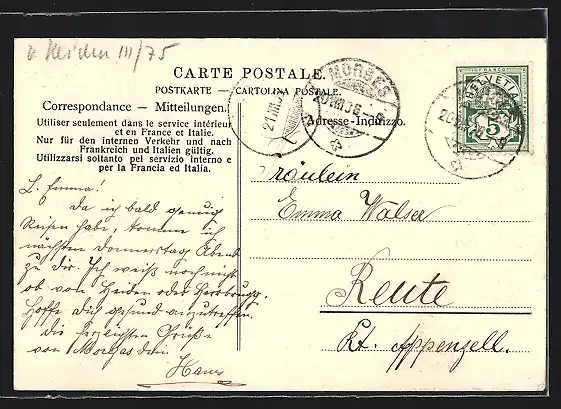 b. Heiden III/75
CARTE POSTALE.
POSTKARTE — CARTOLINA POSTALE.
Correspondance — Mitteilungen.
Adresse-Indirizzo.
Utiliser seulement dans le service intérieur
et en France et Italie.
Nur für den internen Verkehr und nach
Frankreich und Italien gültig.
Utilizzarsi soltanto pel servizio interno e
per la Francia ed Italia.
MORGES
HELVETIA
5
L. Emma!
Da ich bald genug
Reisen habe, komme ich
nächsten Donnerstag Abend
zu Dir. Ich weiß noch nicht
ob von Heiden oder Herbrugg.
Hoffe Dich gesund anzutreffen.
Die herzigsten Grüße
von Morges
Hans
Fräulein
Emma Walser
Reute
Kt. Appenzell.